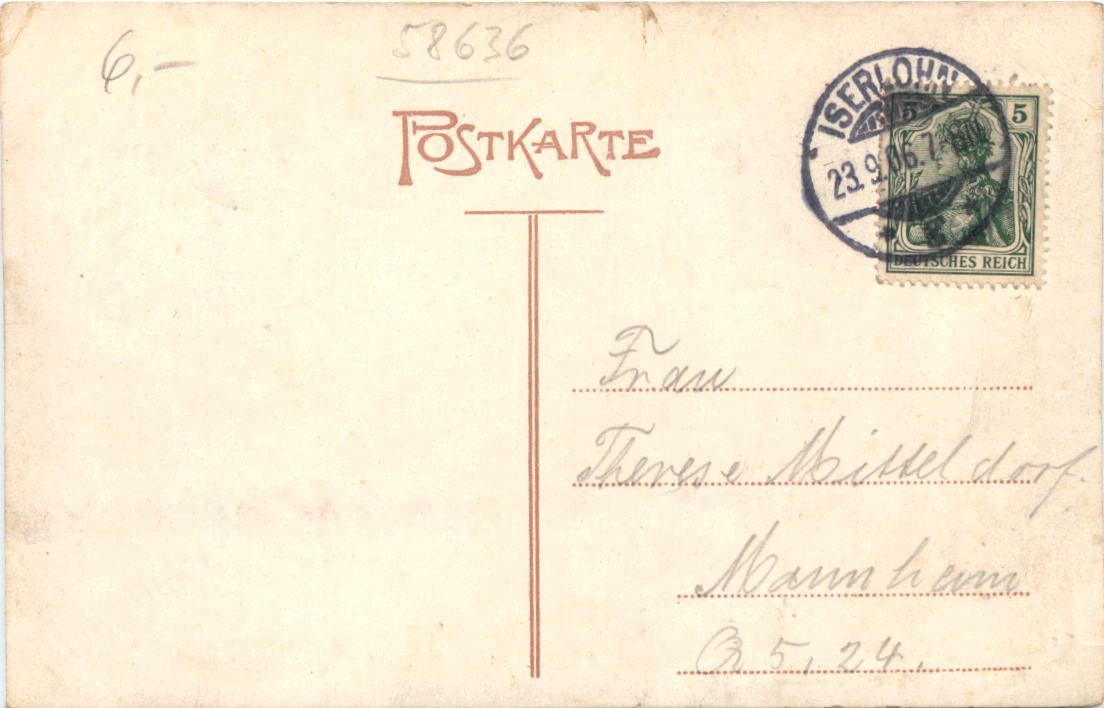 6,-
58636
POSTKARTE
ISERLOHN
23.9.06.7-8N
5 5
DEUTSCHES REICH
Frau
Therese Mitteldorf.
Mannheim
Q 5, 24.